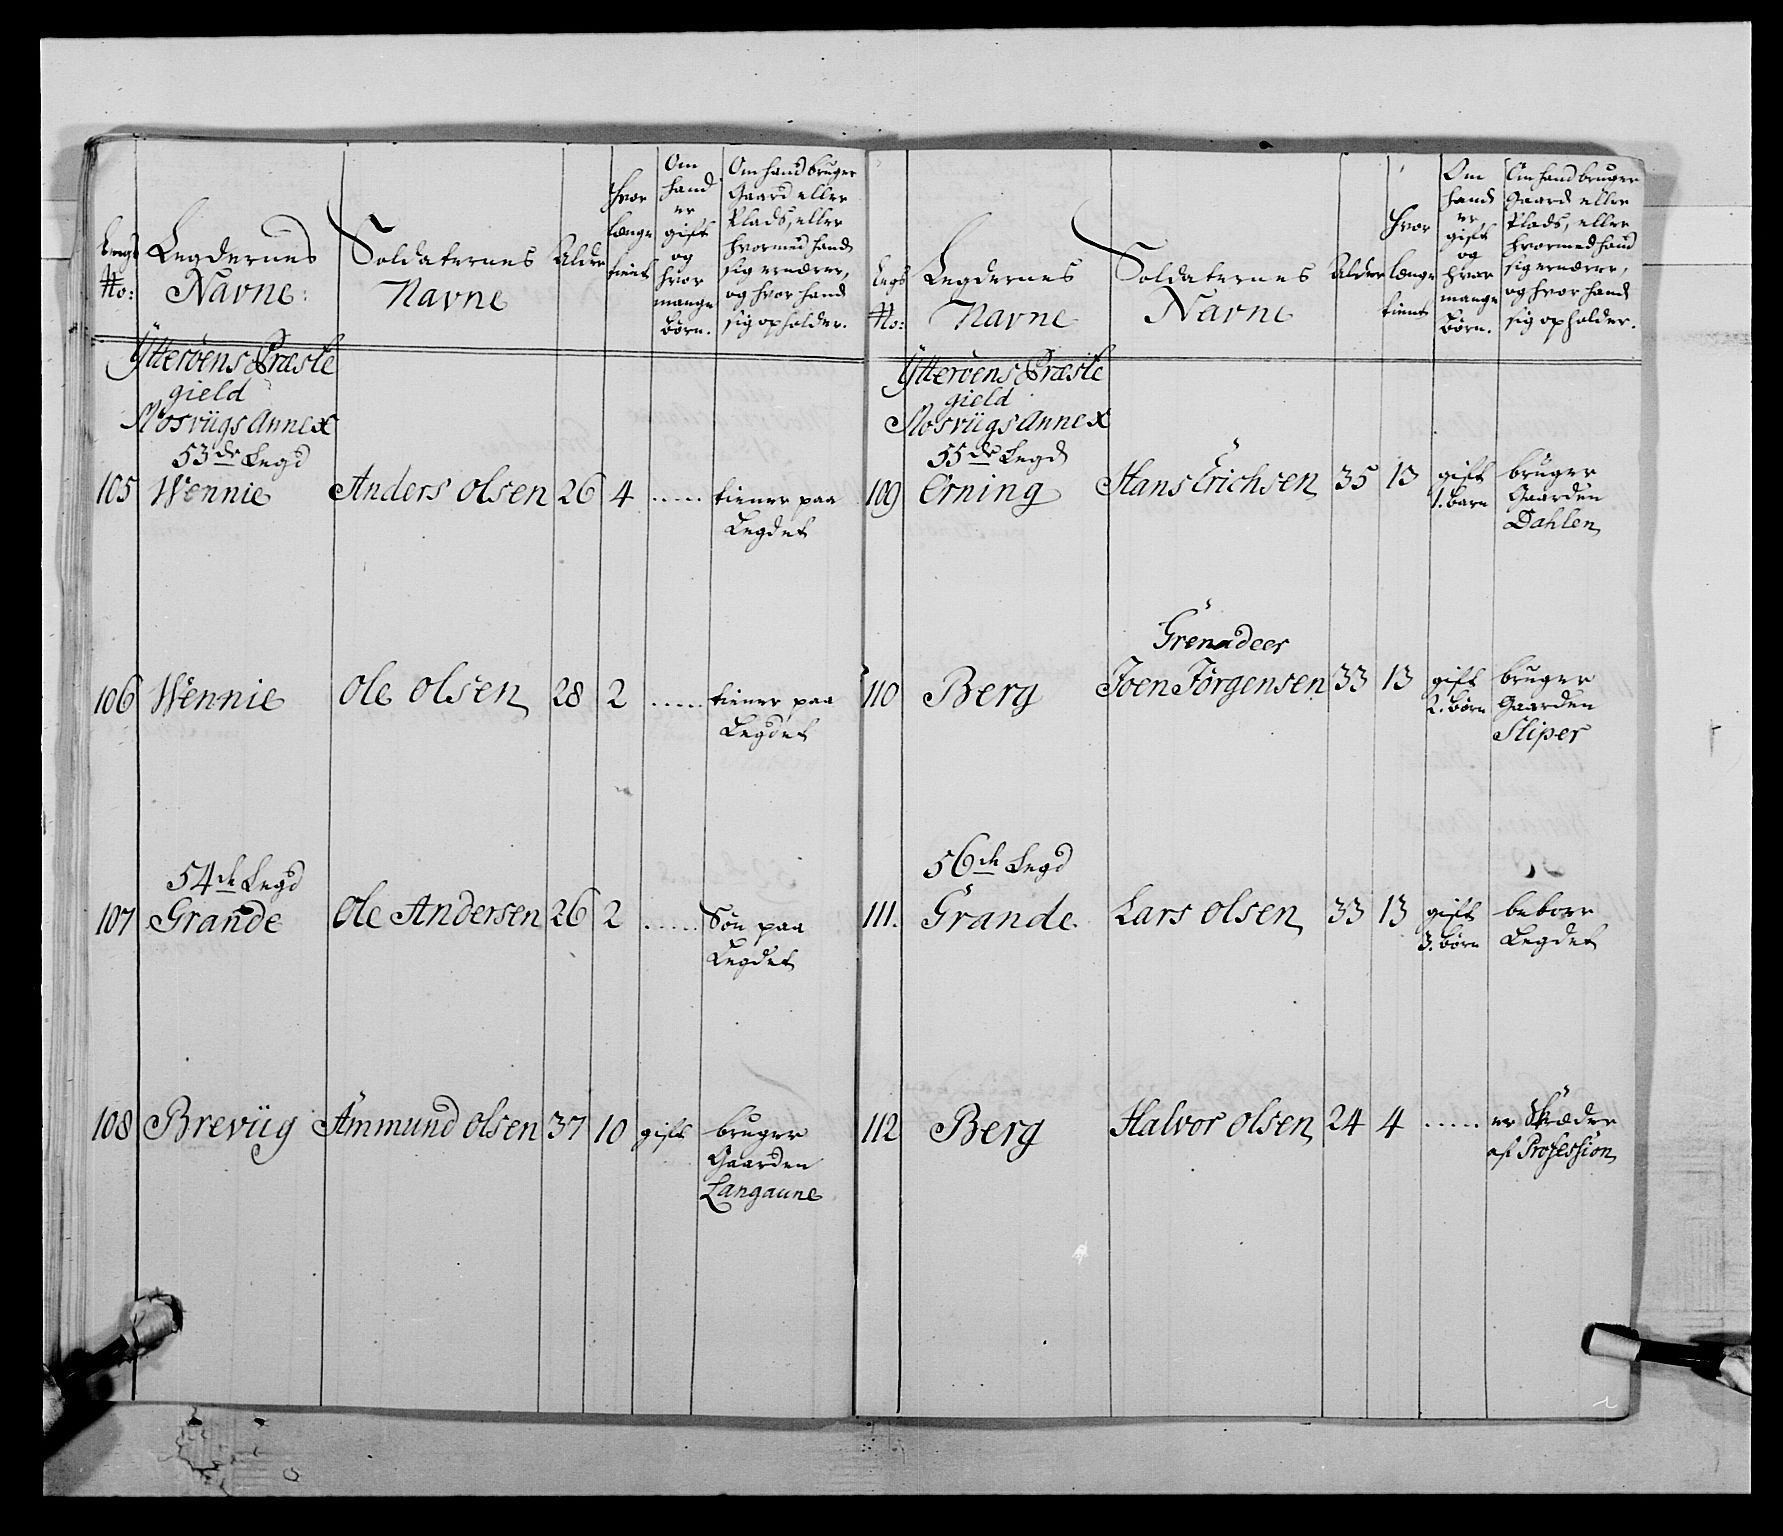 Legds No:
Legdernes Navne:
Soldaternes Navne
Alder
hvor længe tient
Om hand er gift og hvor mange børn.
Om hand bruger Gaard eller Plads, eller hvormed hand sig ernærer, og hvor hand sig opholder.
Ytterøens Præste
gield
Mosviigs Annex
53de Legd
105 Wennie Anders Olsen 26 4 ..... tiener paa
Legdet
106 Wennie Ole Olsen 28 2 ..... tiener paa
Legdet
54de Legd
107 Grande Ole Andersen 26 2 ..... Søn paa
Legdet
108 Breviig Ammund Olsen 37 10 gift bruger
Gaarden
Langaune
Legds No:
Legdernes Navne
Soldaternes Navne
Alder
hvor længe tient
Om hand er gift og hvor mange børn.
Om hand bruger Gaard eller Plads, eller hvormed hand sig ernærer, og hvor hand sig opholder.
Ytterøens Præste
gield
Mosviigs Annex
55de Legd
109 Erning Hans Erichsen 35 13 gift bruger
1. barn Gaarden
Dahlen
Grenadeer
110 Berg Joen Jørgensen 33 13 gift bruger
2. børn Gaarden
Sliper
56de Legd
111. Grande Lars Olsen 33 13 gift beboer
3. børn Legdet
112 Berg Halvor Olsen 24 4 ..... er Skrædre
af Profession